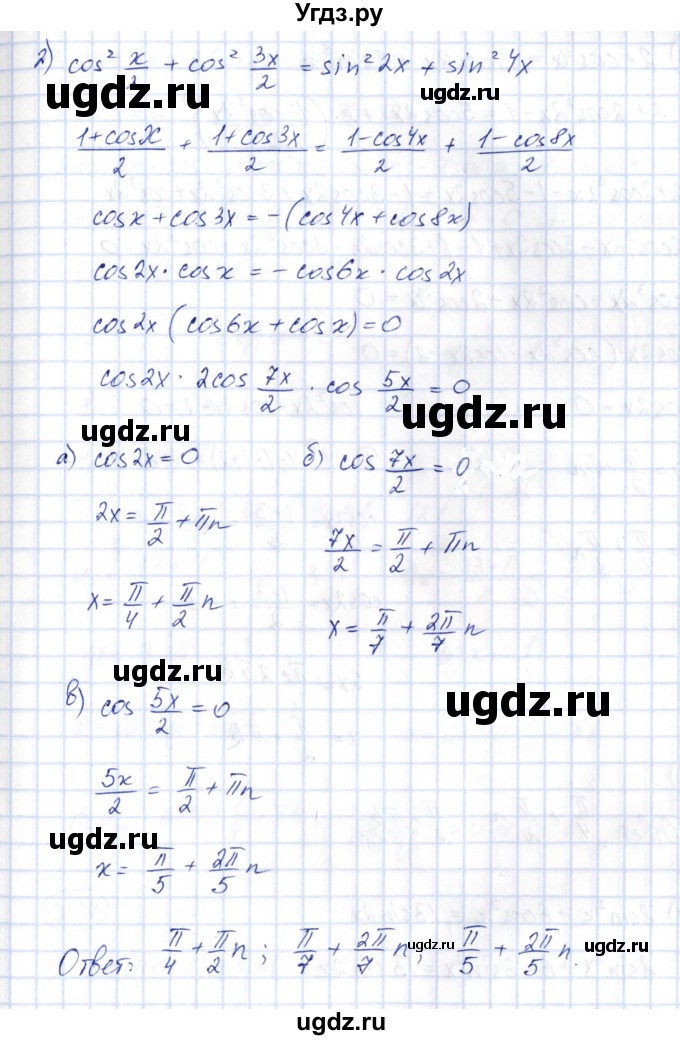 Угдз.ру
2) cos² x/2 + cos² 3x/2 = sin² 2x + sin² 4x
ugdz.ru
ugdz.ru
(1+cosx)/2 + (1+cos3x)/2 = (1-cos4x)/2 + (1-cos8x)/2
cosx + cos3x = -(cos4x + cos8x)
cos2x · cosx = -cos6x · cos2x
cos2x (cos6x + cosx) = 0
cos2x · 2cos 7x/2 · cos 5x/2 = 0
ugdz.ru
ugdz.ru
а) cos2x = 0
б) cos 7x/2 = 0
2x = π/2 + πn
7x/2 = π/2 + πn
x = π/4 + π/2 n
x = π/7 + 2π/7 n
ugdz.ru
ugdz.ru
в) cos 5x/2 = 0
5x/2 = π/2 + πn
ugdz.ru
x = π/5 + 2π/5 n
Ответ: π/4 + π/2 n; π/7 + 2π/7 n; π/5 + 2π/5 n.
ugdz.ru
ugdz.ru
ugdz.ru